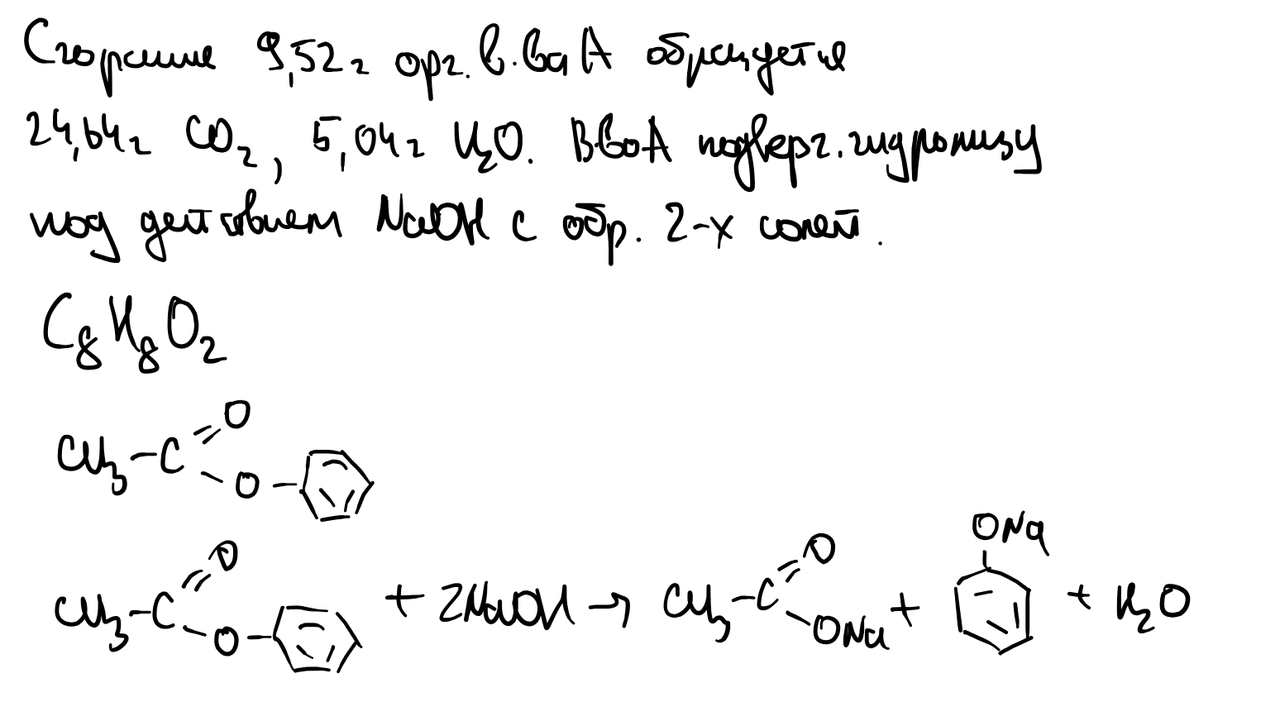 Сгорание 9,52г орг. в.ва А образуется
24,64г CO2, 5,04г H2O. В-во А подверг. гидролизу
под действием NaOH с обр. 2-х солей.
C8H8O2
CH3-C=O-O-
CH3-C=O-O- + 2NaOH → CH3-C=O-ONa + ONa + H2O